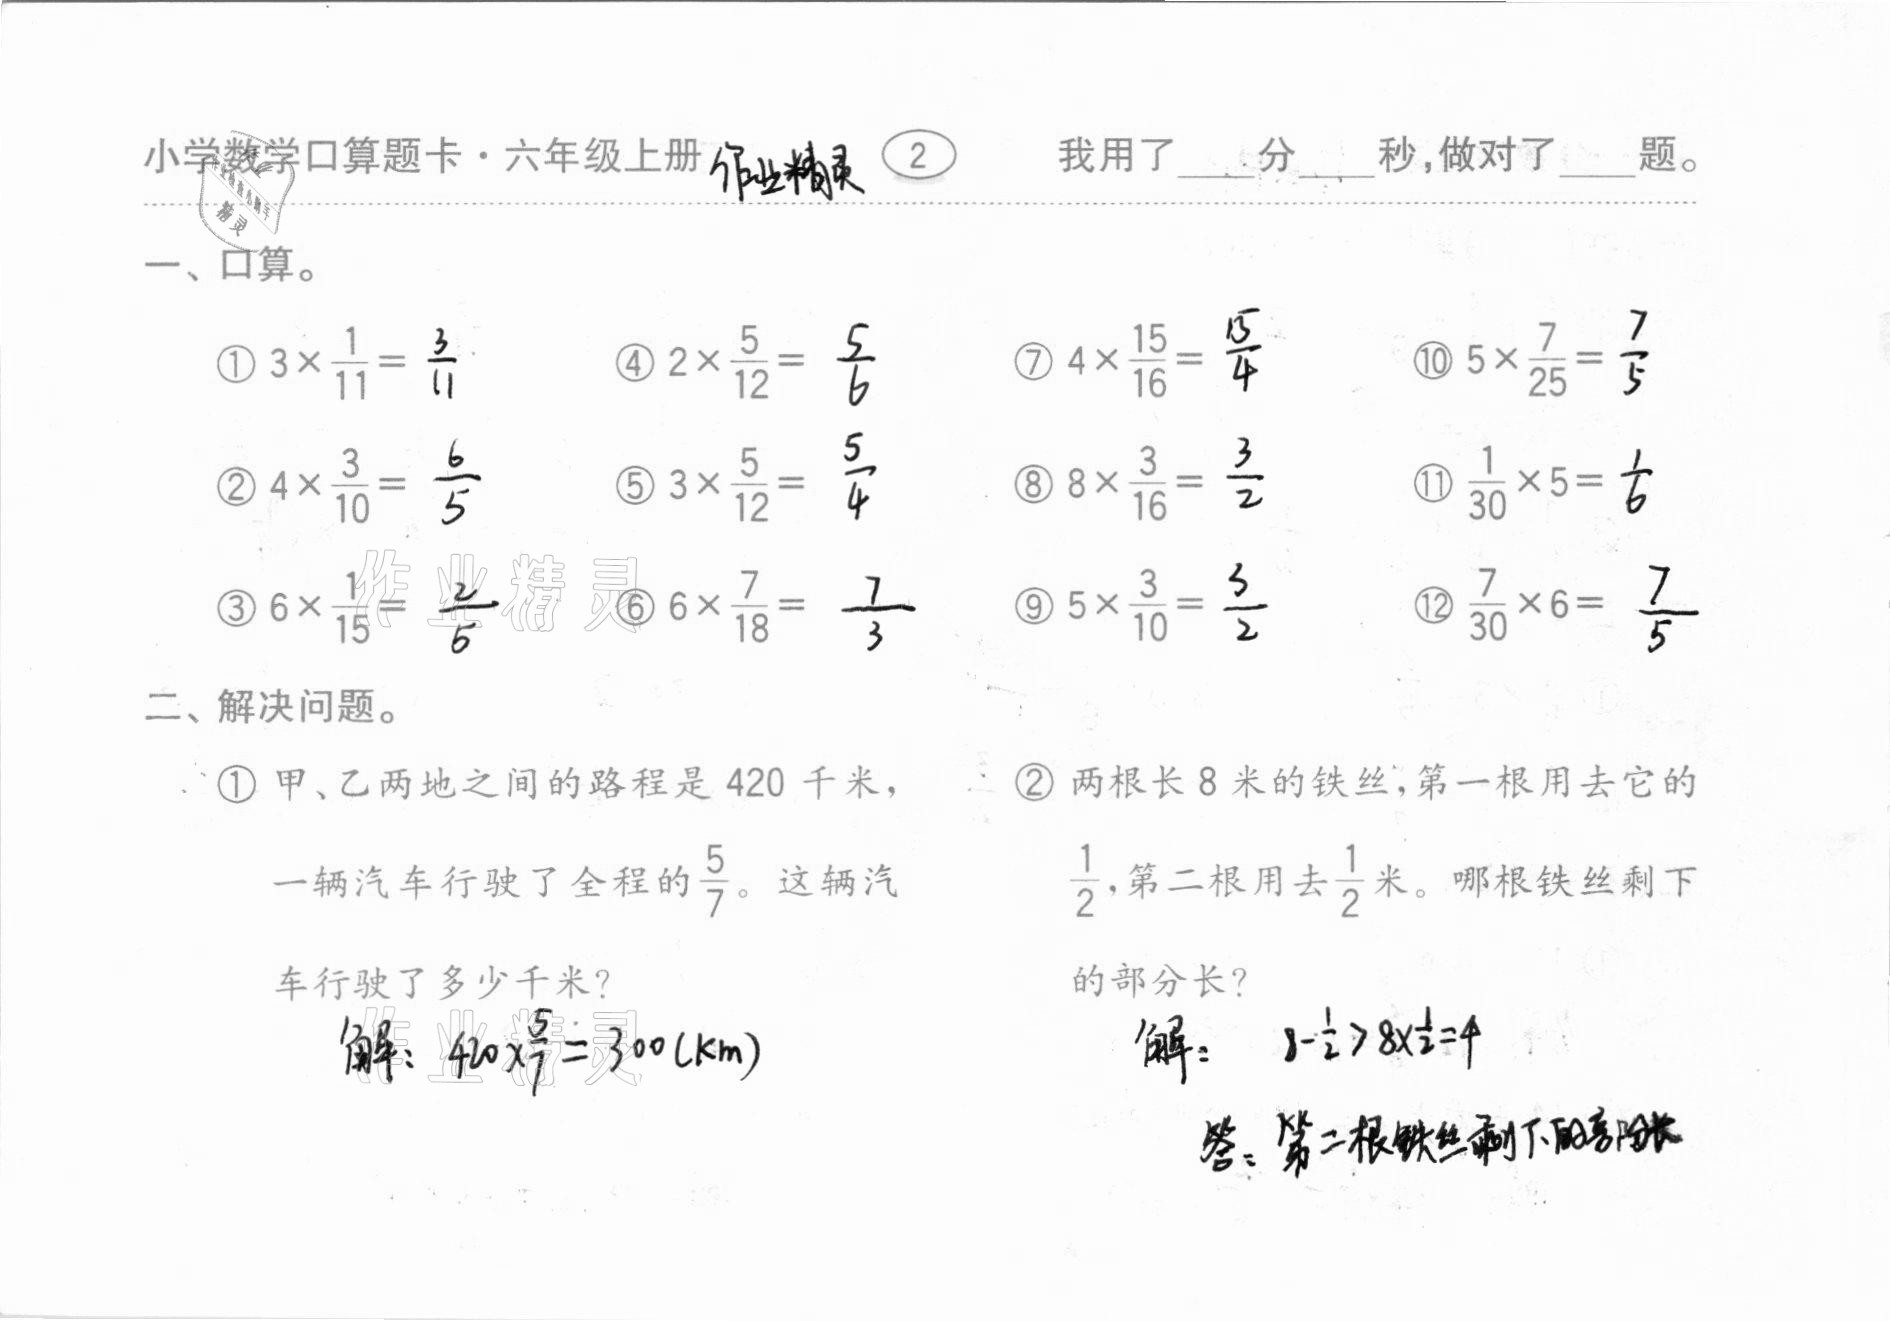 小学数学口算题卡·六年级上册 作业精灵 2 我用了____分____秒,做对了____题。
一、口算。
① 3×1/11= 3/11 ④ 2×5/12= 5/6 ⑦ 4×15/16= 15/4 ⑩ 5×7/25= 7/5
② 4×3/10= 6/5 ⑤ 3×5/12= 5/4 ⑧ 8×3/16= 3/2 ⑪ 1/30×5= 1/6
③ 6×1/15= 2/5 ⑥ 6×7/18= 7/3 ⑨ 5×3/10= 3/2 ⑫ 7/30×6= 7/5
作业精灵
二、解决问题。
① 甲、乙两地之间的路程是 420 千米,
一辆汽车行驶了全程的5/7。这辆汽
车行驶了多少千米?
解: 420×5/7=300(km)
作业精灵
② 两根长 8 米的铁丝,第一根用去它的
1/2,第二根用去1/2米。哪根铁丝剩下
的部分长?
解: 8-1/2>8×1/2=4
答: 第二根铁丝剩下的部分长